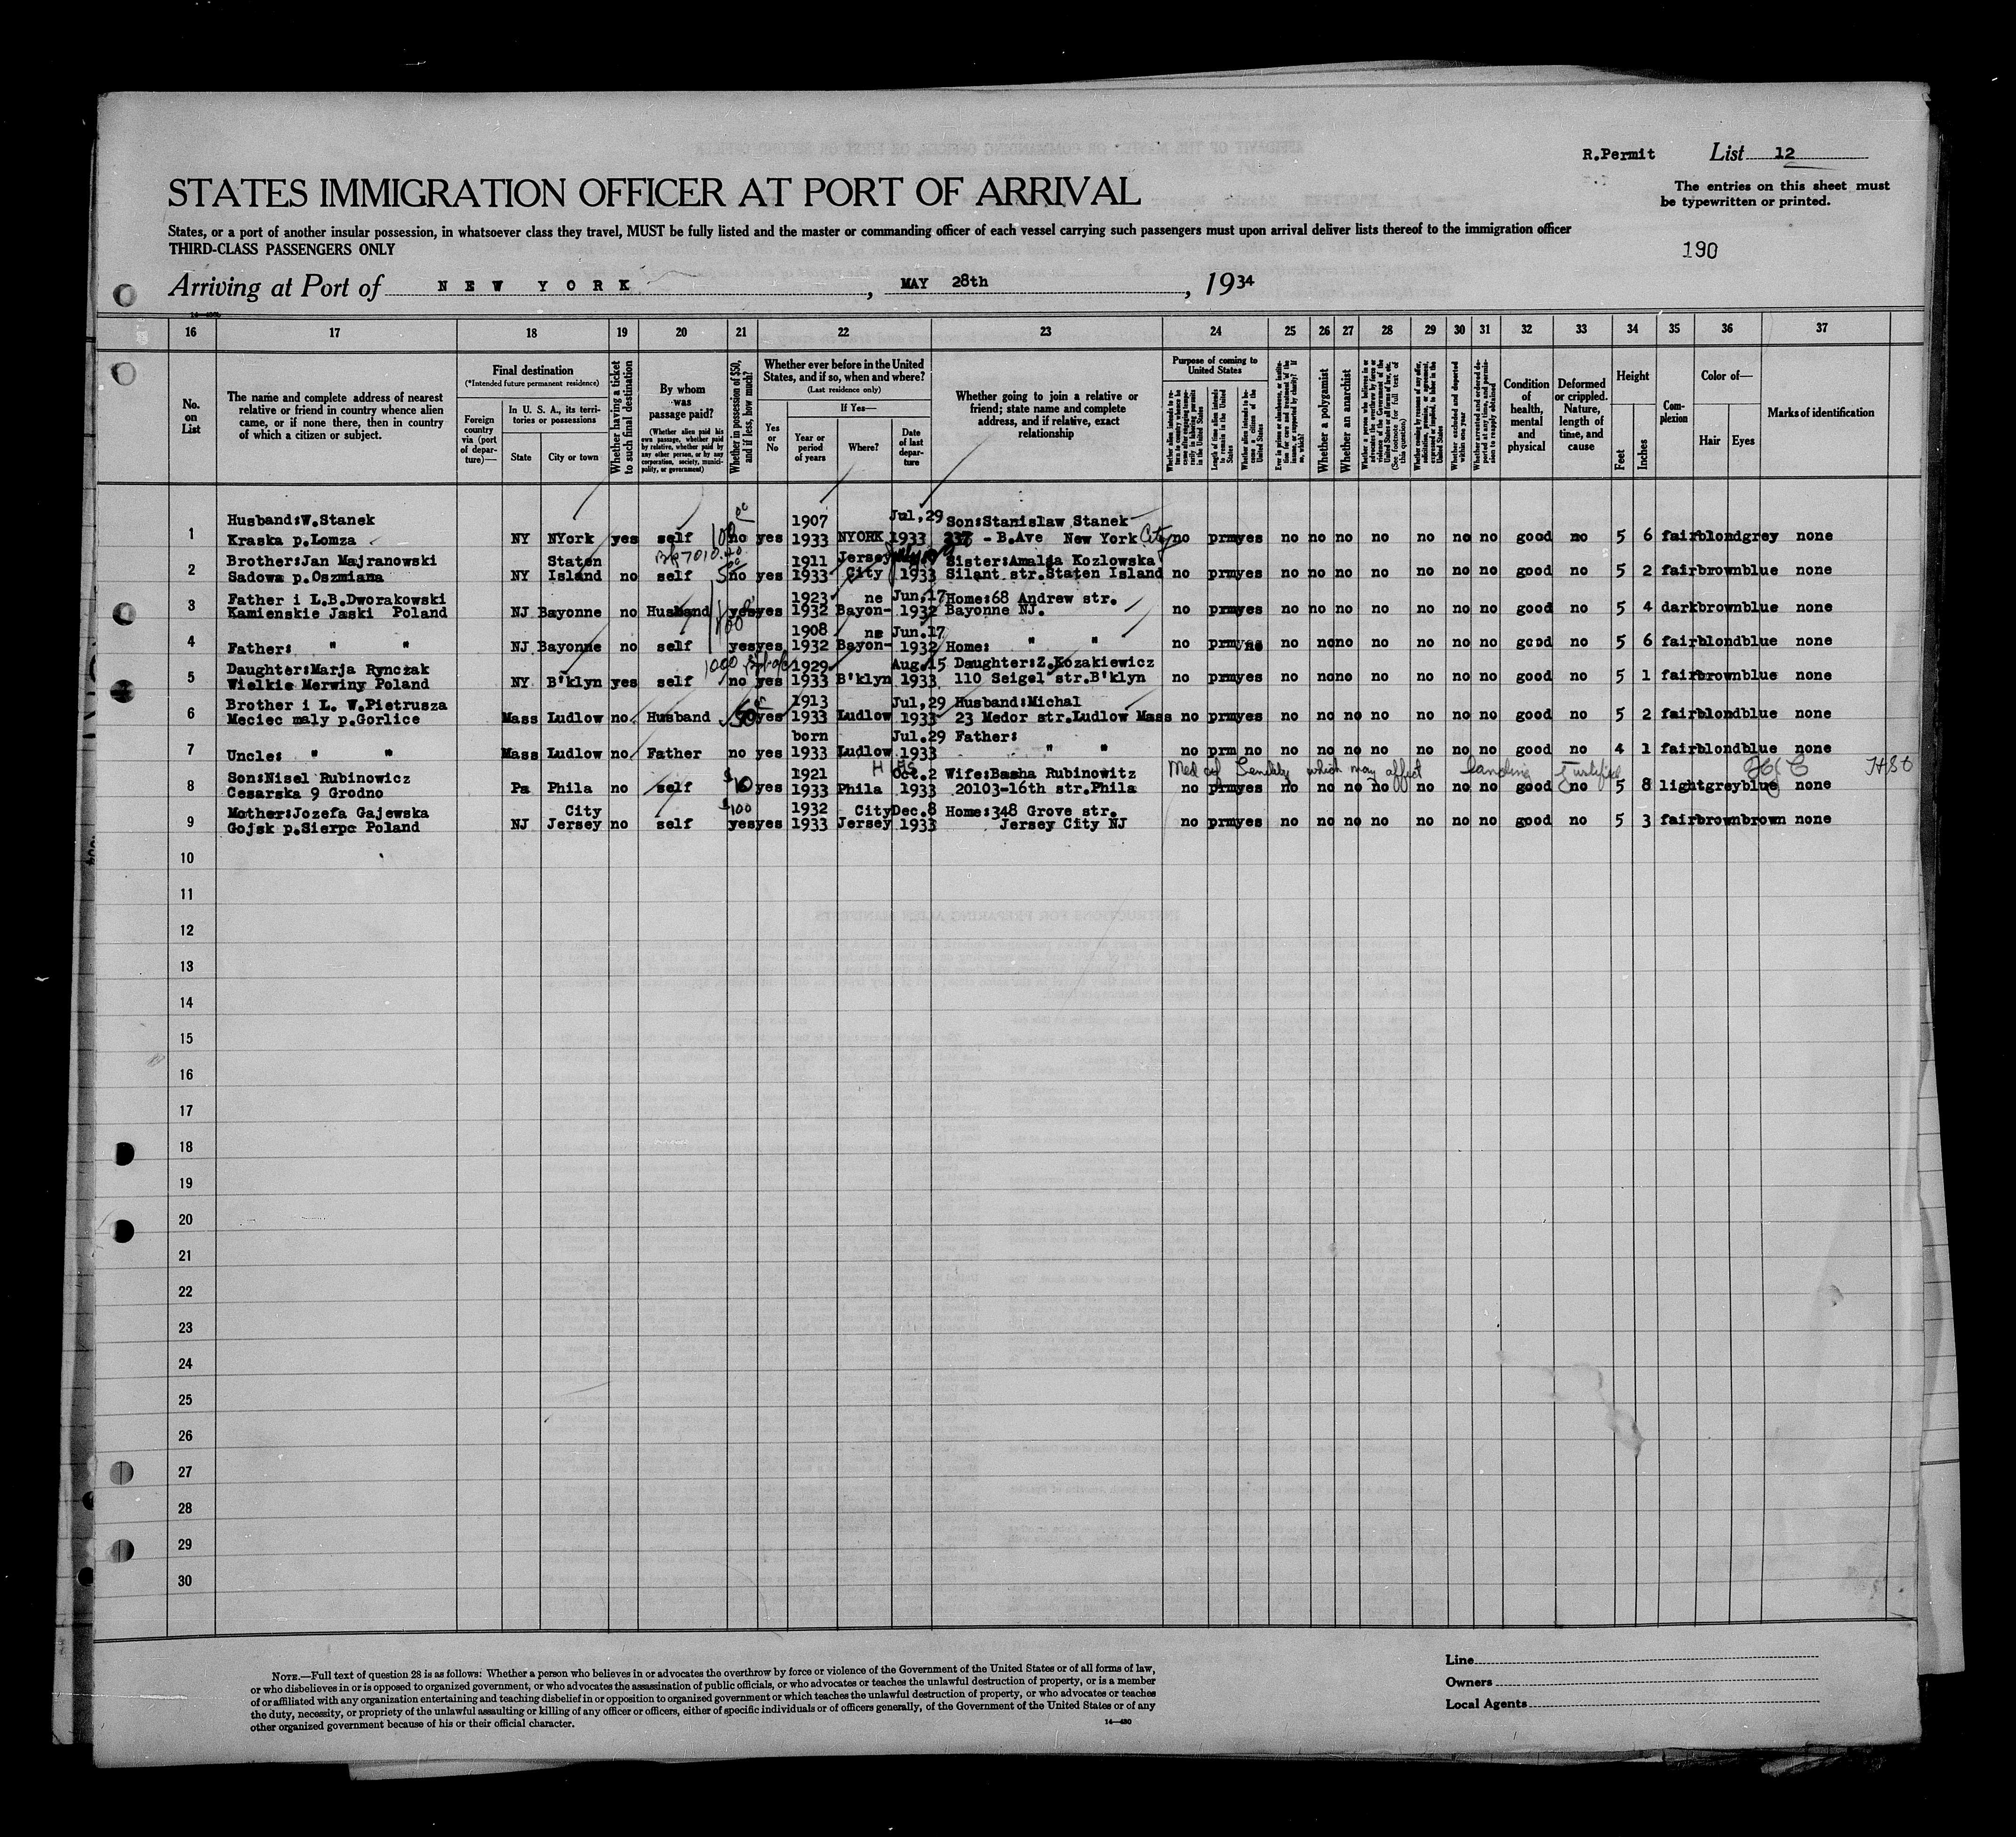 R.Permit List 12
STATES IMMIGRATION OFFICER AT PORT OF ARRIVAL
The entries on this sheet must
be typewritten or printed.
States, or a port of another insular possession, in whatsoever class they travel, MUST be fully listed and the master or commanding officer of each vessel carrying such passengers must upon arrival deliver lists thereof to the immigration officer
THIRD-CLASS PASSENGERS ONLY
190
Arriving at Port of NEW YORK, MAY 28th, 1934
16 17 18 19 20 21 22 23 24 25 26 27 28 29 30 31 32 33 34 35 36 37
No. on List
The name and complete address of nearest relative or friend in country whence alien came, or if none there, then in country of which a citizen or subject.
Final destination
(*Intended future permanent residence)
Foreign country via (port of departure)—
In U. S. A., its territories or possessions
State City or town
Whether having a ticket to such final destination
By whom was passage paid?
(Whether alien paid his own passage, whether paid by relative, whether paid by any other person, or by any corporation, society, municipality, or government)
Whether in possession of $50, and if less, how much?
Whether ever before in the United States, and if so, when and where?
(Last residence only)
Yes or No
If Yes—
Year or period of years
Where?
Date of last departure
Whether going to join a relative or friend; state name and complete address, and if relative, exact relationship
Purpose of coming to United States
Whether a polygamist
Whether an anarchist
Condition of health, mental and physical
Deformed or crippled. Nature, length of time, and cause
Height
Feet Inches
Complexion
Color of—
Hair Eyes
Marks of identification
Husband:W.Stanek 1907 Jul,29 Son:Stanislaw Stanek
1 Kraska p.Lomza NY NYork yes self no yes 1933 NYORK 1933 - B.Ave New York City no prm yes no no no no no no no good no 5 6 fair blond grey none
Brother:Jan Majranowski Staten 1911 Jersey Sister:Amalda Kozlowska
2 Sadowa p.Oszmiana NY Island no self no yes 1933 City 1933 Silant str.Staten Island no prm yes no no no no no no no good no 5 2 fair brown blue none
Father i L.B.Dworakowski 1923 ne Jun,17 Home:68 Andrew str.
3 Kamienskie Jaski Poland NJ Bayonne no Husband yes yes 1932 Bayon- 1932 Bayonne NJ. no prm yes no no no no no no no good no 5 4 dark brown blue none
1908 ne Jun.17
4 Father: " " NJ Bayonne no self yes yes 1932 Bayon- 1932 Home: " " no prm no no no no no no no good no 5 6 fair blond blue none
Daughter:Marja Rynczak 1929 Aug.15 Daughter:Z.Kozakiewicz
5 Wielkie Merwiny Poland NY B'klyn yes self no yes 1933 B'klyn 1933 110 Seigel str.B'klyn no prm yes no no no no no no no good no 5 1 fair brown blue none
Brother i L. W.Pietrusza 1913 Jul,29 Husband:Michal
6 Meciec maly p.Gorlice Mass Ludlow no Husband 50 yes 1933 Ludlow 1933 23 Medor str.Ludlow Mass no prm yes no no no no no no no good no 5 2 fair blond blue none
born Jul.29 Father:
7 Uncle: " " Mass Ludlow no Father no yes 1933 Ludlow 1933 " " no prm no no no no no no no no good no 4 1 fair blond blue none
Son:Nisel Rubinowicz 1921 Oct.2 Wife:Basha Rubinowitz Med cf Senility which may affect landing
8 Cesarska 9 Grodno Pa Phila no self $10 yes 1933 Phila 1933 20103-16th str.Phila no prm yes no no no no no no no good no 5 8 light grey blue none
Mother:Jozefa Gajewska City $100 1932 City Dec.8 Home:348 Grove str.
9 Gojsk p.Sierpc Poland NJ Jersey no self yes yes 1933 Jersey 1933 Jersey City NJ no prm yes no no no no no no no good no 5 3 fair brown brown none
10
11
12
13
14
15
16
17
18
19
20
21
22
23
24
25
26
27
28
29
30
NOTE.—Full text of question 28 is as follows: Whether a person who believes in or advocates the overthrow by force or violence of the Government of the United States or of all forms of law,
or who disbelieves in or is opposed to organized government, or who advocates the assassination of public officials, or who advocates or teaches the unlawful destruction of property, or is a member
of or affiliated with any organization entertaining and teaching disbelief in or opposition to organized government or which teaches the unlawful destruction of property, or who advocates or teaches
the duty, necessity, or propriety of the unlawful assaulting or killing of any officer or officers, either of specific individuals or of officers generally, of the Government of the United States or of any
other organized government because of his or their official character.
14—430
Line
Owners
Local Agents